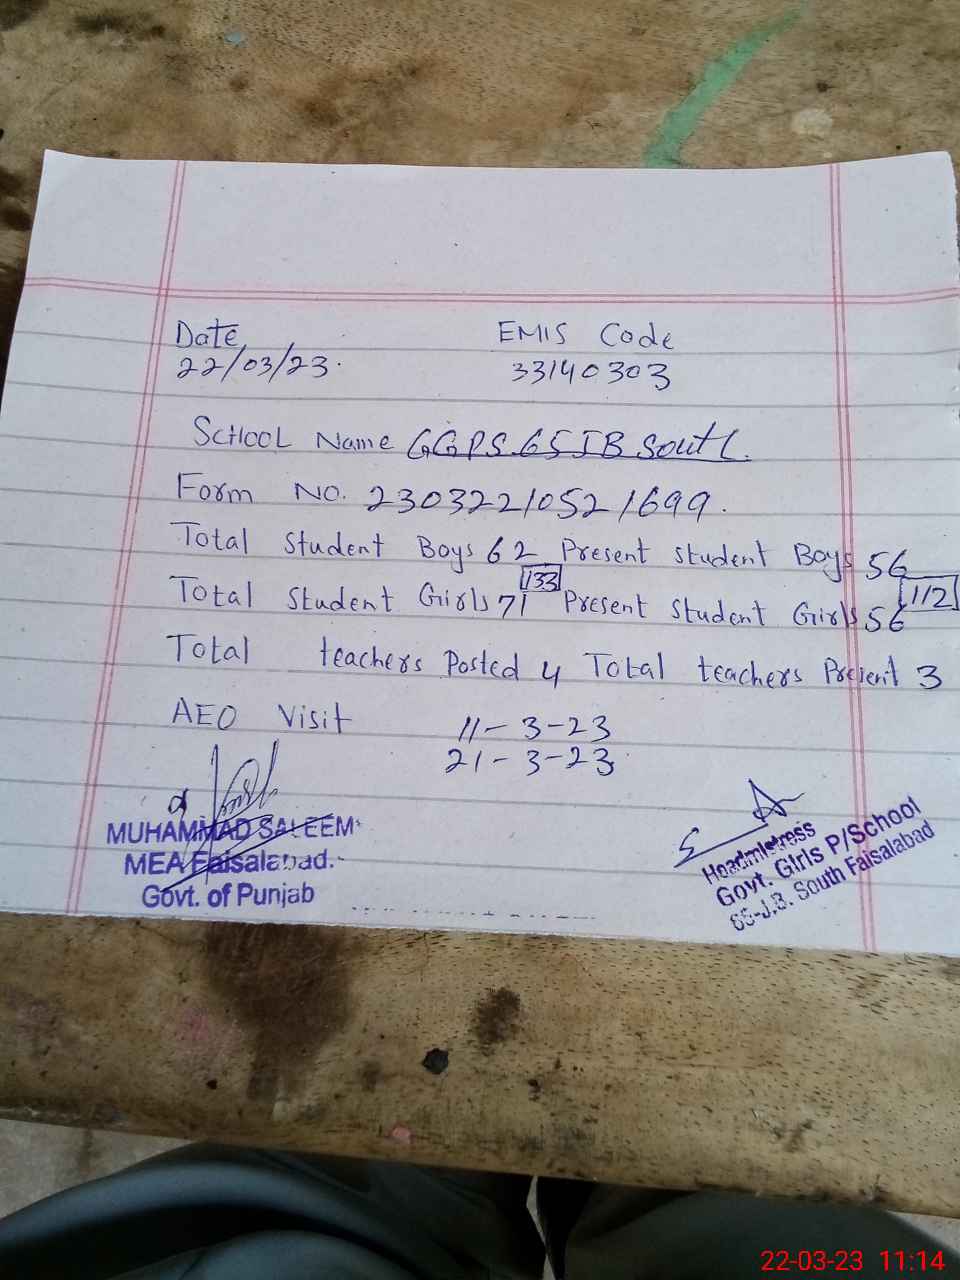 Date
EMIS Code
22/03/23.
33140303
SCHOOL Name GGPS 65JB South
Form NO. 23032210521699.
Total Student Boys 62 Present Student Boys 56
133
112
Total Student Girls 71 Present Student Girls 56
Total teachers Posted 4 Total teachers Present 3
AEO Visit
11-3-23
21-3-23
MUHAMMAD SALEEM
MEA Faisalabad.
Govt. of Punjab
Headmistress
Govt. Girls P/School
65-J.B. South Faisalabad
22-03-23 11:14